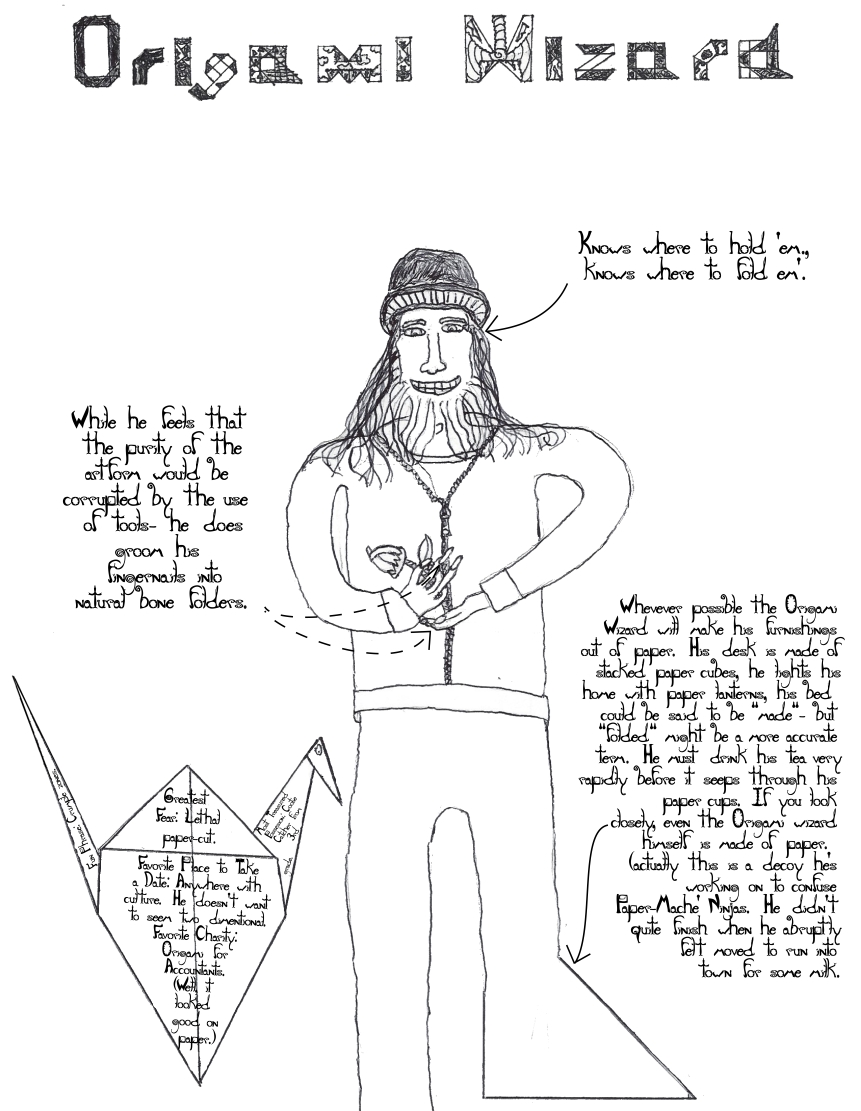 Origami Wizard
Knows where to hold 'em.,
knows where to fold em'.
While he feels that
the purity of the
artform would be
corrupted by the use
of tools- he does
groom his
fingernails into
natural bone folders.
Whevever possible the Origami
Wizard will make his furnishings
out of paper. His desk is made of
stacked paper cubes, he lights his
home with paper lanterns, his bed
could be said to be "made"- but
"folded" might be a more accurate
term. He must drink his tea very
rapidly before it seeps through his
paper cups. If you look
closely, even the Origami wizard
himself is made of paper.
(actually this is a decoy he's
working on to confuse
Paper-Mache' Ninjas. He didn't
quite finish when he abruptly
felt moved to run into
town for some milk.
Fav Phrase: Crumple zones.
Greatest
Fear: Lethal
paper-cut.
Favorite Place to Take
a Date: Anywhere with
culture. He doesn't want
to seem two dimentional.
Favorite Charity:
Origami for
Accountants.
(Well, it
looked
good on
paper.)
3rd
grade